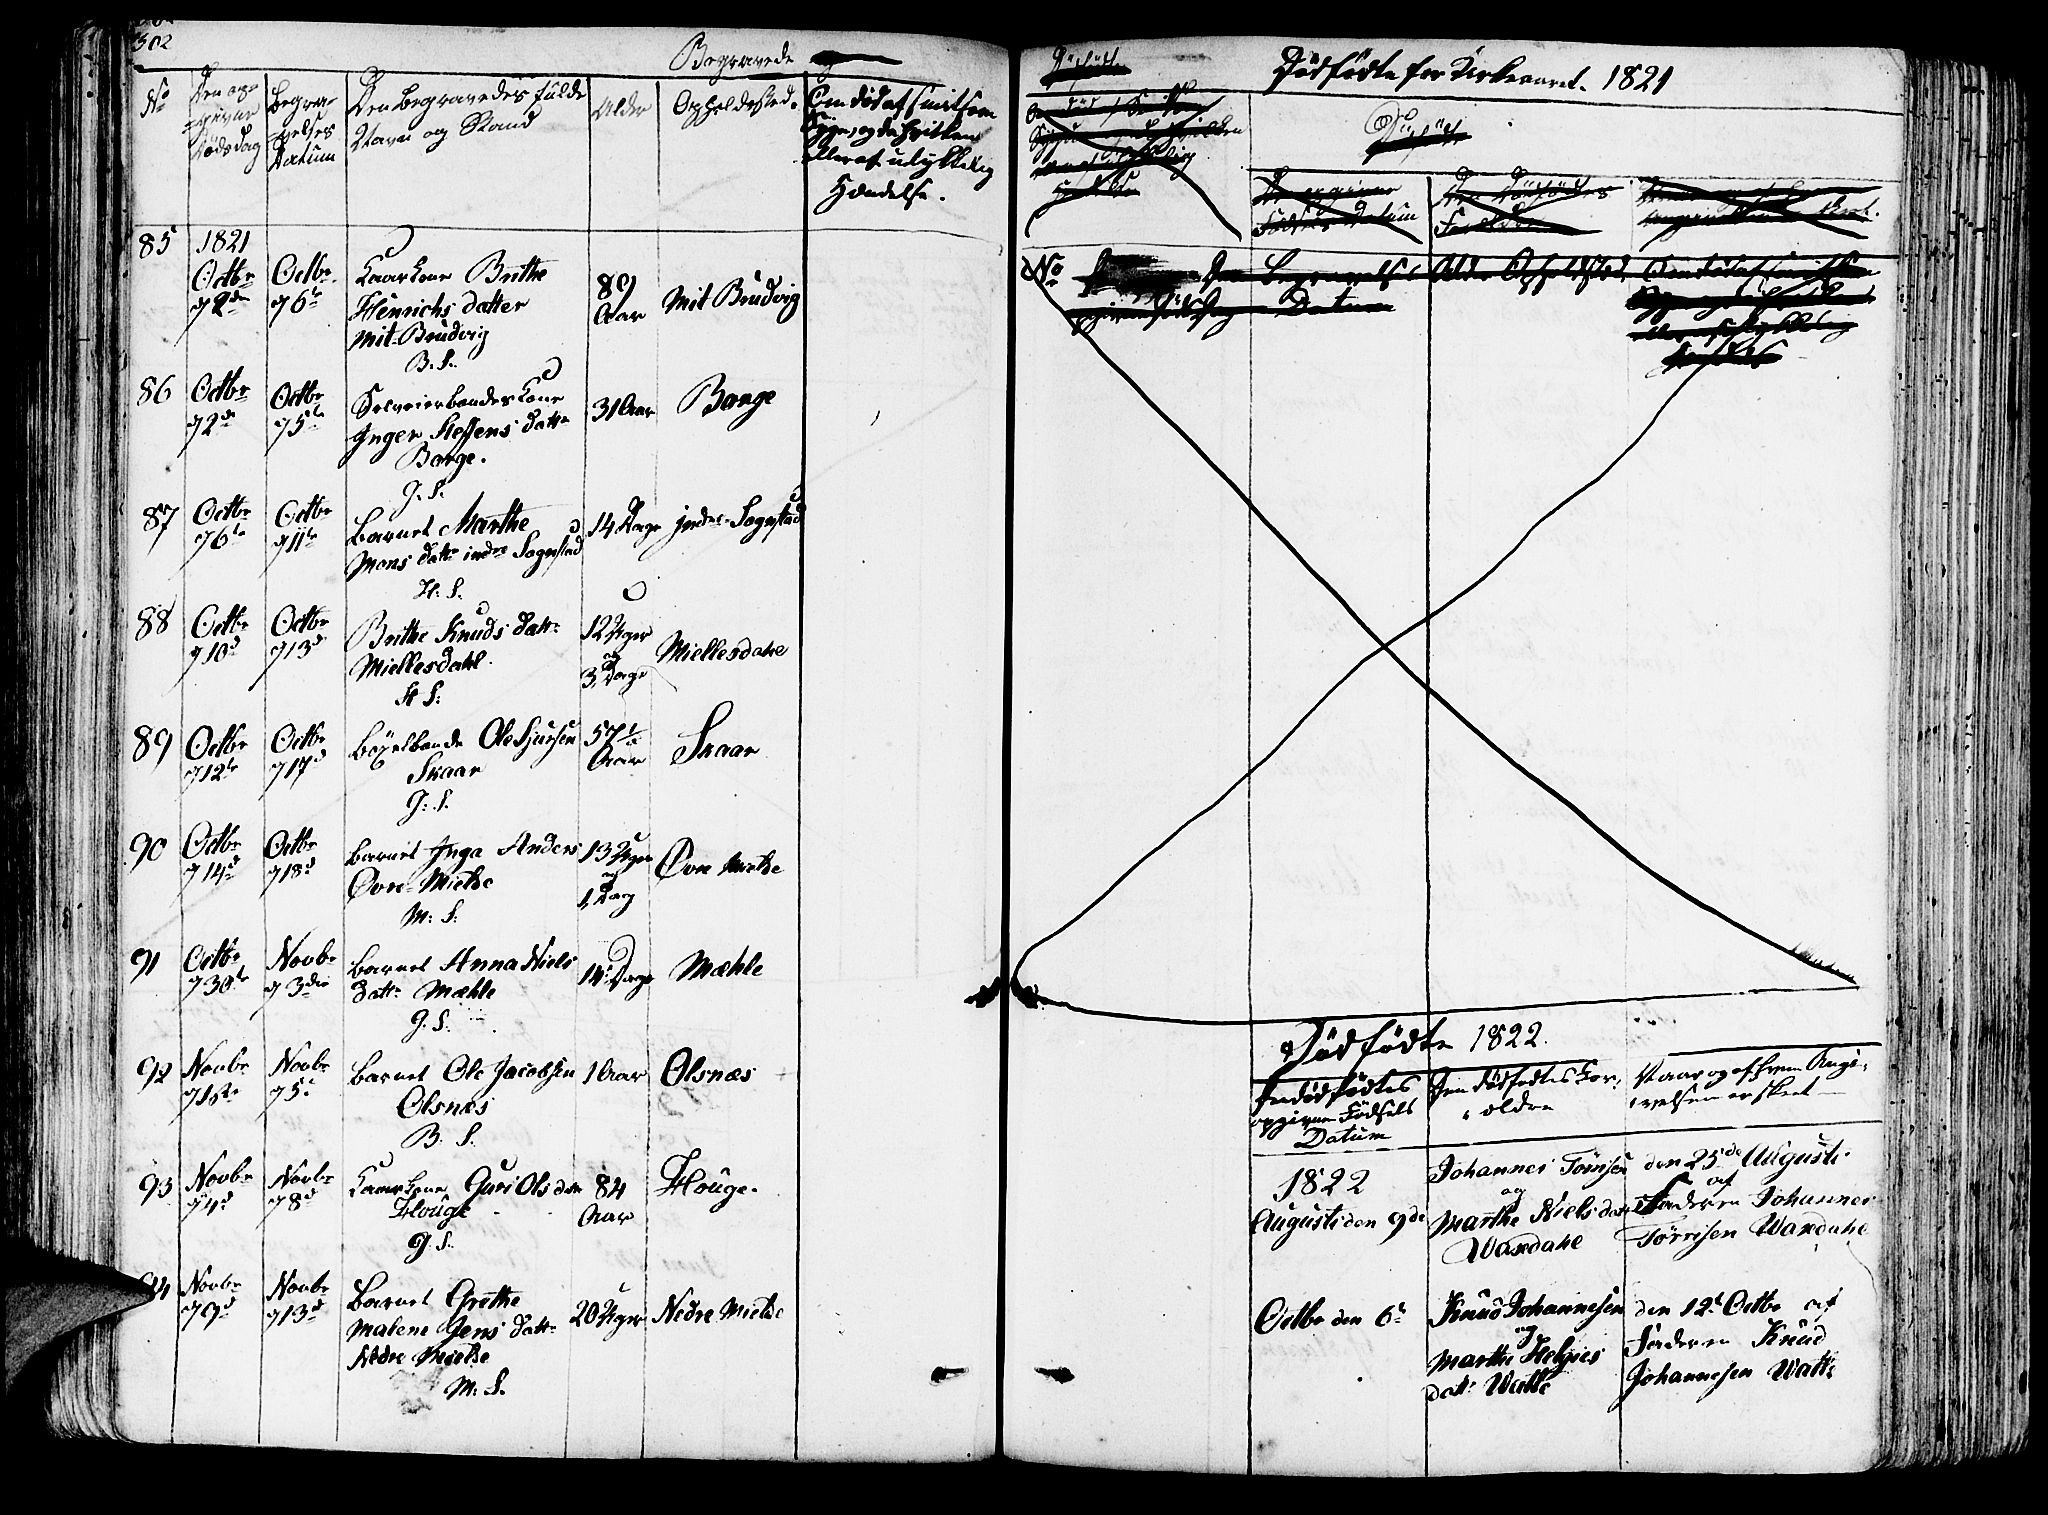 302
Begravede
No
Den op-
givne
Dødsdag
Begra-
velses
Datum
Den begravedes fulde
Navn og Stand
Alder
Opholdssted.
Om død af smitsom
Syge, og da hvilken
eller af ulykkelig
Hændelse.
85
1821
Octbr
92de
Octbr
96te
Kaarkone Brithe
Henrichs datter
Mit-Brudvig
B. S.
89
Aar
Mit Brudvig
86
Octbr
92de
Octbr
95te
Selveierbondes Kone
Inger Steffens Dattr
Borge.
G. S.
31 Aar
Borge
87
Octbr
96te
Octbr
911te
Barnet Marthe
Mons Dattr indre Sognstad
H. S.
14 Dage
indre Sognstad
88
Octbr
910d
Octbr
913d
Brithe Knuds Dattr
Miellesdahl.
H S:
12 Uger
og
3 Dage
Miellesdahl
89
Octbr
912te
Octbr
917d
Böxelbonde Ole Sjursen
Skaar
G: S.
57½
Aar
Skaar
90
Octbr
914d
Octbr
918d
Barnet Inga Anders
Øvre-Mielde
M: S:
13 Uger
og
1 Dag
Øvre Mielde
91
Octbr
930te
Novbr
93die
Barnet Anna Niels
Dattr Mæhle
G. S.
14 Dage
Mæhle
92
Novbr
Novbr
95te
Barnet Ole Jacobsen
Olsnæs
B. S.
1 Aar
Olsnæs
93
Novbr
94d
Novbr
98d
Kaarkone Guri Ols dtr
Houge
G. S.
84
Aar
Houge.
94
Novbr
99d
Novbr
913d
Barnet Grethe
Malene Jens Dattr
Nedre Mielde
M: S.
20 Uger
Nedre Mielde
Dødfødte for Kirkeaaret. 1821
Dødfødte
Dødfødte
No
Den
Begravelses
Datum
Alder
Opholdssted
Dødfødte 1822.
Den dødfødtes
opgivne Fødsels
Datum
Den dødfødtes For,
ældre
Naar og af hvem Angi-
velsen er skeet
1822
Augusti den 9de
Johannes Tørrisen
og
Marthe Niels datter
Waxdahl
den 25de Augusti
af
Faderen Johannes
Tørrisen Waxdahl
Octbr den 6te
Knud Johannesen
og
Marthe Helgies
dattr Watle
den 12te Octbr af
Faderen Knud
Johannesen Watle